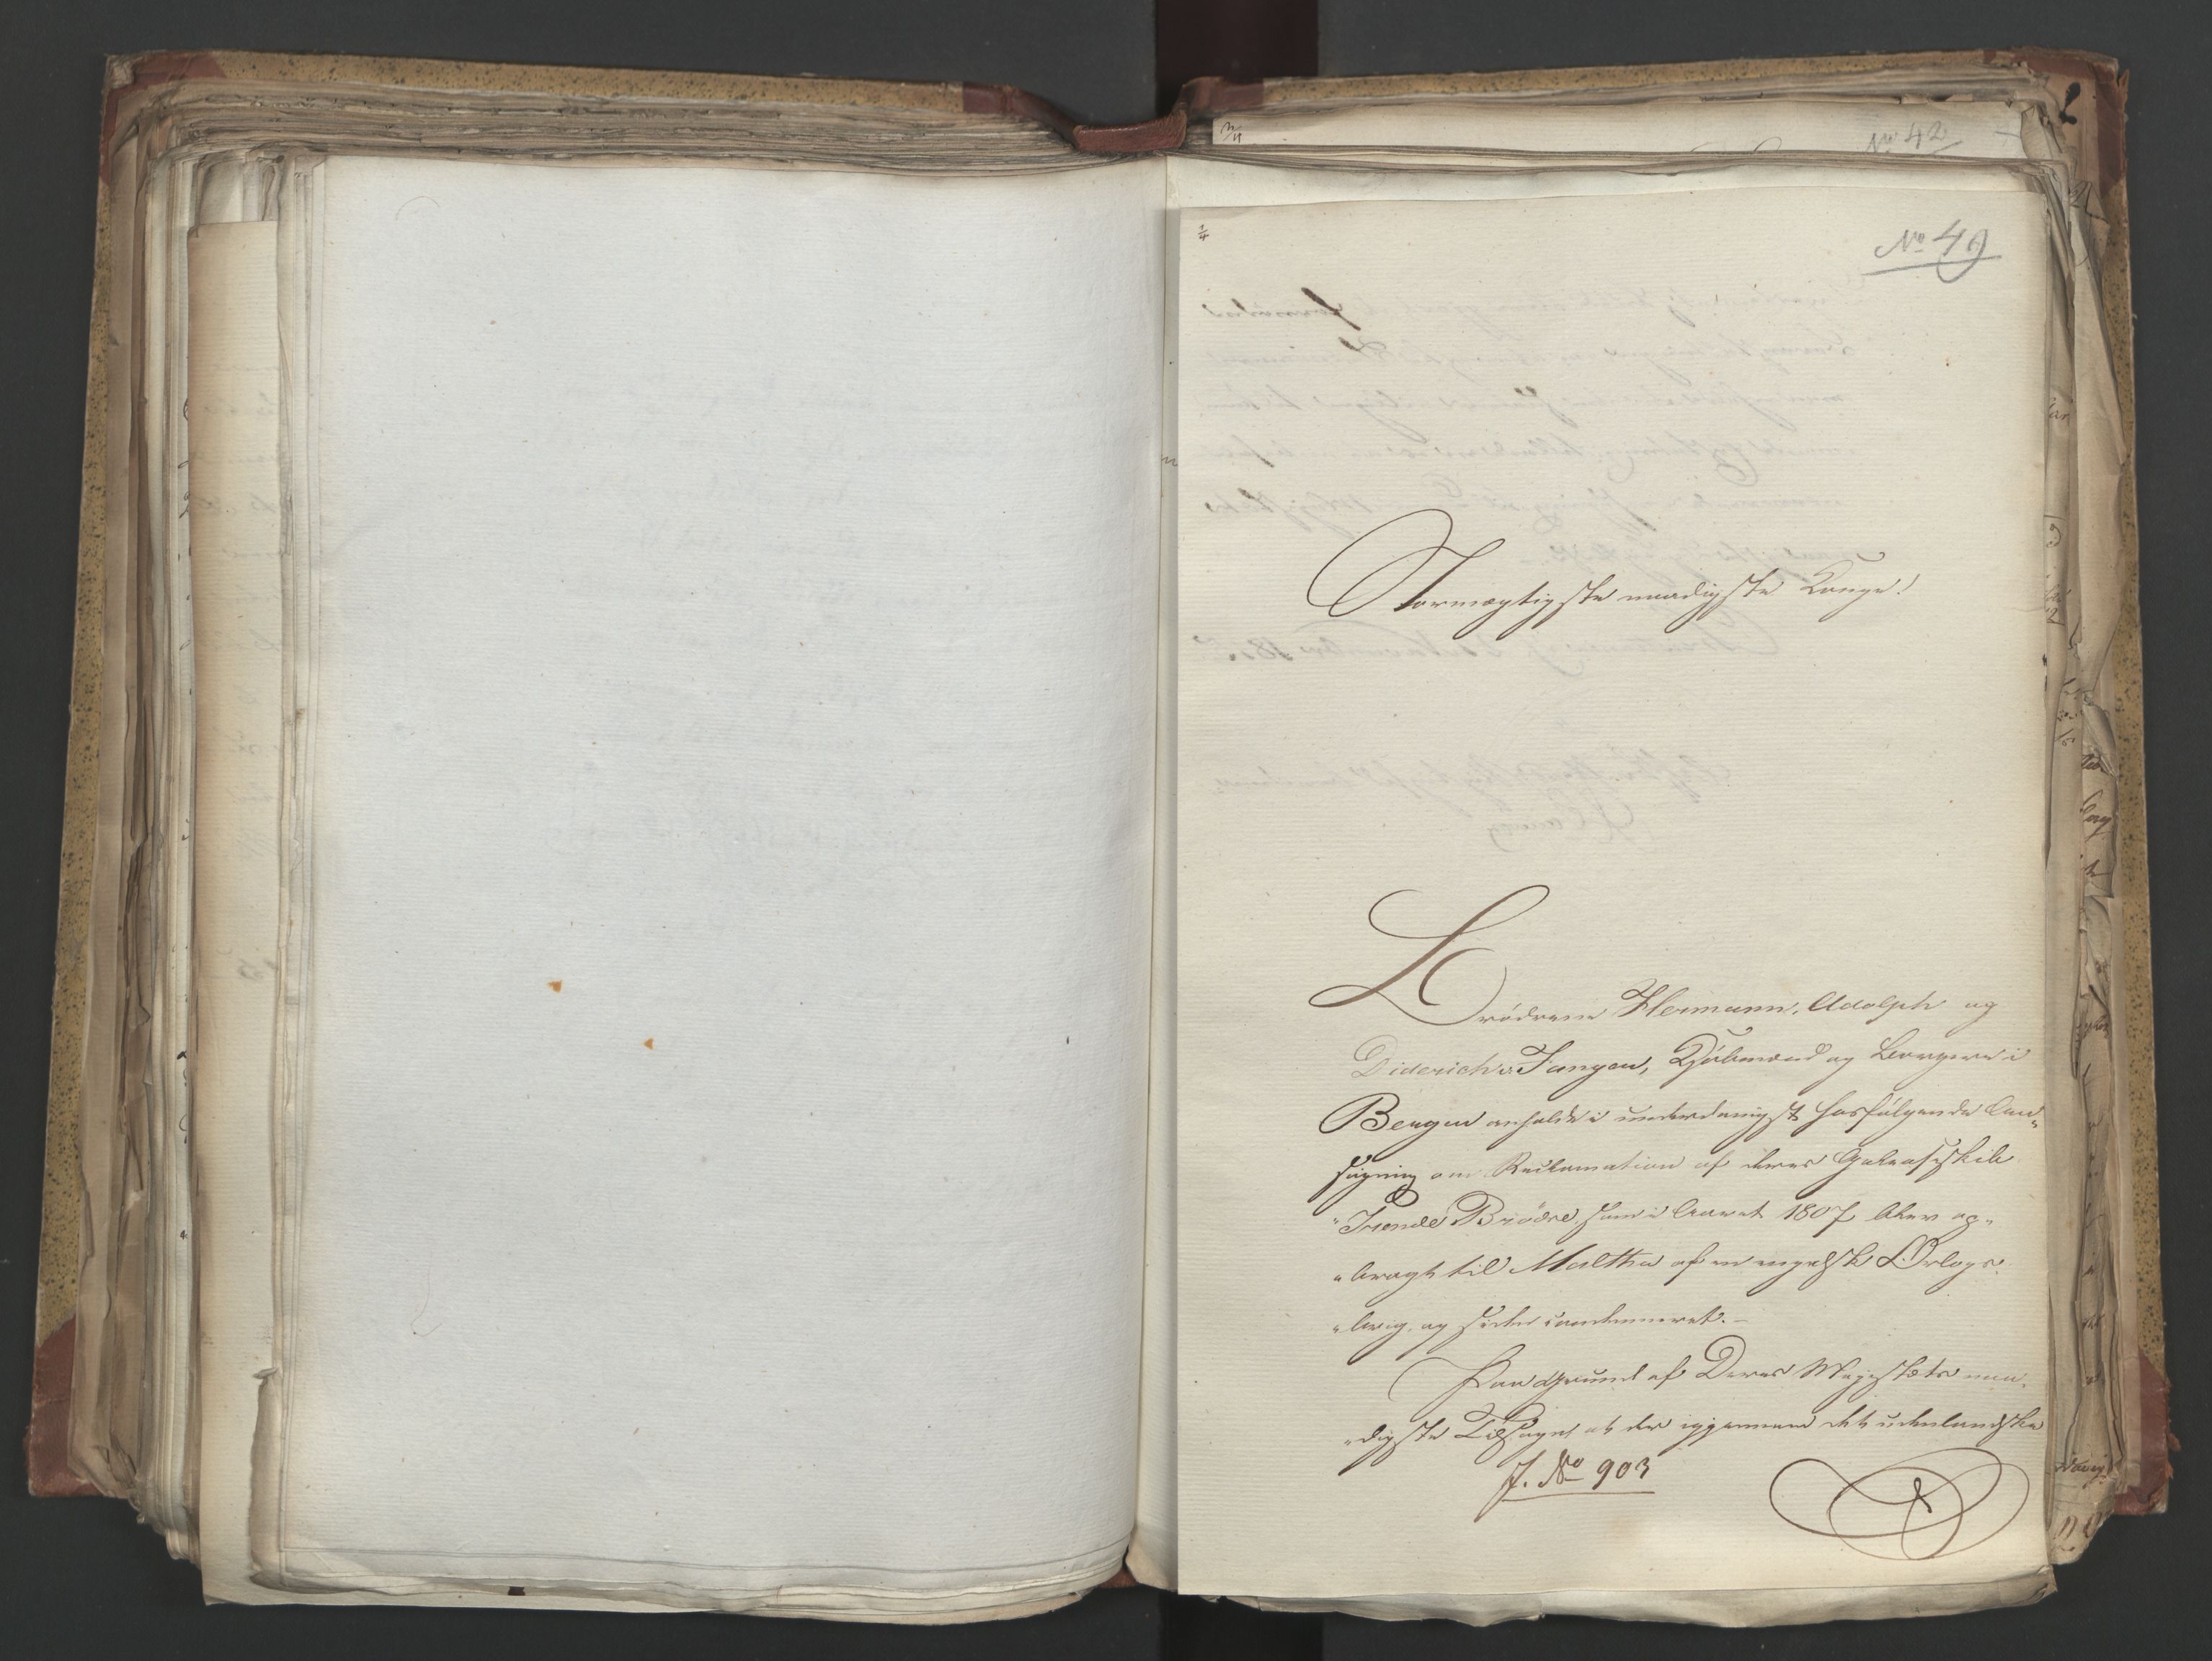 No 42
No 49
Stormægtigste naadigste Konge!
Brödrene Hermann, Adolph og
Diderich v. Tangen, Kjöbmænd og Borgere i
Bergen anholde i underdanigst hosfölgende An„
sögning om Reclamation af deres Galeasskib
„Trende Brödre, som i Aaret 1807 blev op„
„bragt til Maltha af en engelsk Orlogs„
„brig, og siden condemneret.–
Paa Grund af Deres Majestæts naa„
„digste Tilsagn at der igjennem det udenlandske
J. No 903